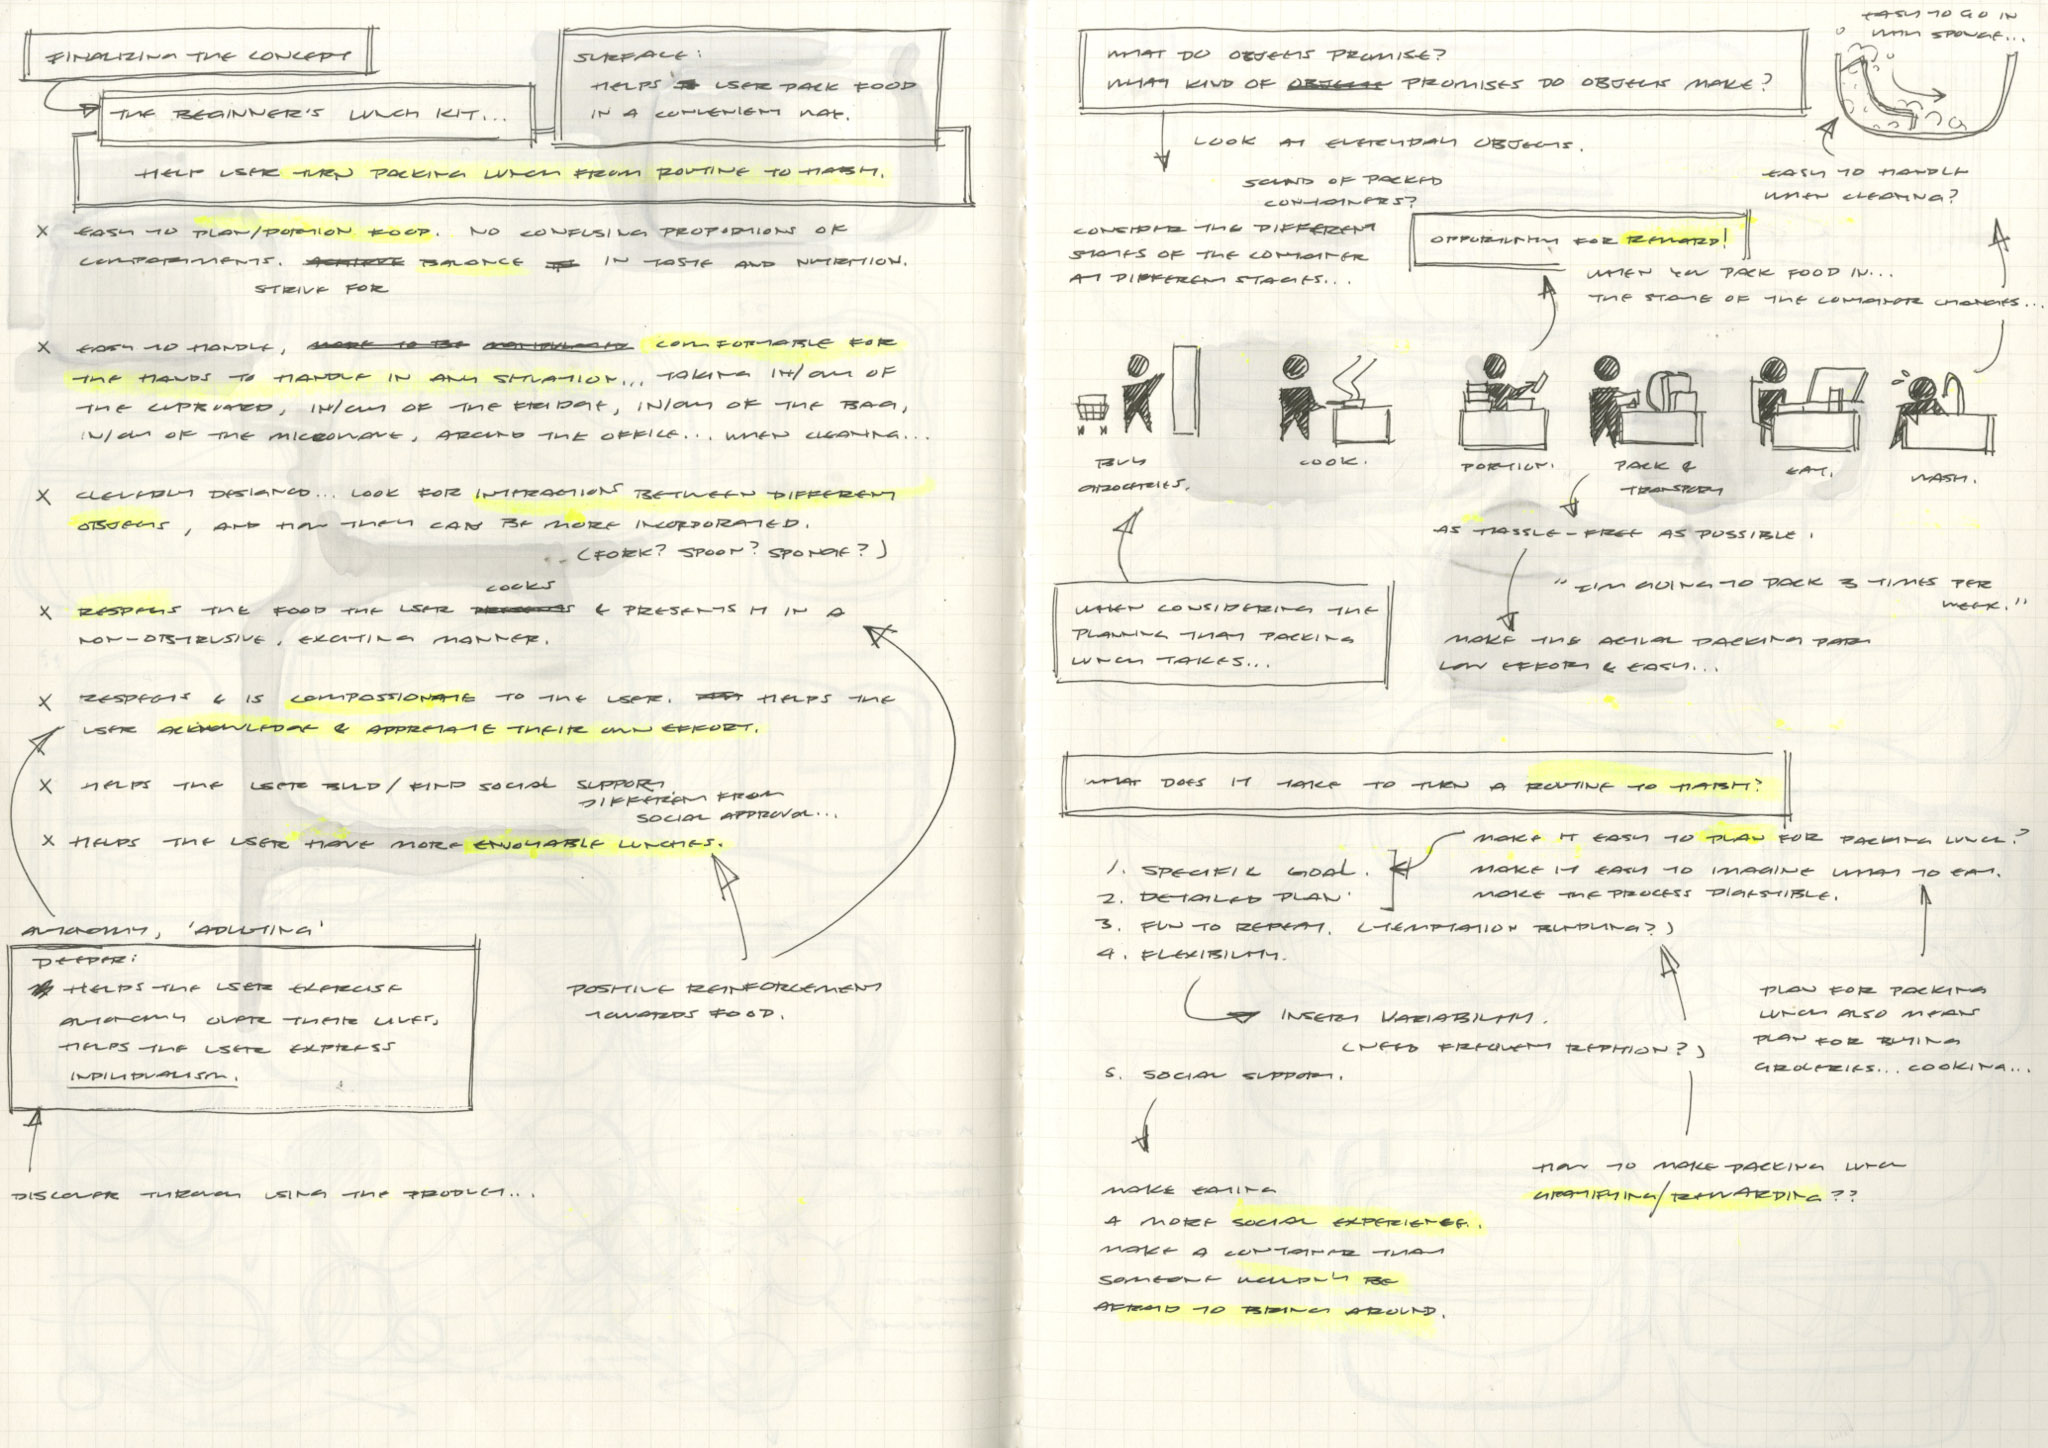 FINALIZING THE CONCEPT
THE BEGINNER'S LUNCH KIT...
SURFACE:
HELPS USER PACK FOOD
IN A CONVENIENT WAY.
HELP USER TURN PACKING LUNCH FROM ROUTINE TO HABIT.
X EASY TO PLAN/PORTION FOOD. NO CONFUSING PROPORTIONS OR
COMPARTMENTS. ACHIEVE BALANCE IN TASTE AND NUTRITION.
STRIVE FOR
X EASY TO HANDLE, MORE TO BE COMFORTABLE FOR
THE HANDS TO HANDLE IN ANY SITUATION... TAKING IN/OUT OF
THE CUPBOARD, IN/OUT OF THE FRIDGE, IN/OUT OF THE BAG,
IN/OUT OF THE MICROWAVE, AROUND THE OFFICE... WHEN CLEANING...
X CLEVERLY DESIGNED... LOOK FOR INTERACTIONS BETWEEN DIFFERENT
OBJECTS, AND HOW THEY CAN BE MORE INCORPORATED.
... (FORK? SPOON? SPONGE?)
COOKS
X RESPECTS THE FOOD THE USER & PRESENTS IT IN A
NON-OBTRUSIVE, EXCITING MANNER.
X RESPECTS & IS COMPASSIONATE TO THE USER. HELPS THE
USER ACKNOWLEDGE & APPRECIATE THEIR OWN EFFORT.
X HELPS THE USER BUILD/FIND SOCIAL SUPPORT
DIFFERENT FROM
SOCIAL APPROVAL...
X HELPS THE USER HAVE MORE ENJOYABLE LUNCHES.
AUTONOMY, 'ADULTING'
DEEPER:
HELPS THE USER EXERCISE
AUTONOMY OVER THEIR LIVES,
HELPS THE USER EXPRESS
INDIVIDUALISM.
POSITIVE REINFORCEMENT
TOWARDS FOOD.
DISCOVER THROUGH USING THE PRODUCT...
WHAT DO OBJECTS PROMISE?
WHAT KIND OF OBJECTS PROMISES DO OBJECTS MAKE?
EASY TO GO IN
WITH SPONGE...
LOOK AT EVERYDAY OBJECTS.
SOUND OF PACKED
CONTAINERS?
EASY TO HANDLE
WHEN CLEANING?
CONSIDER THE DIFFERENT
STATES OF THE CONTAINER
AT DIFFERENT STAGES...
OPPORTUNITY FOR REWARD!
WHEN YOU PACK FOOD IN...
THE STATE OF THE CONTAINER CHANGES...
BUY
GROCERIES.
COOK.
PORTION.
PACK &
TRANSPORT
EAT.
WASH.
AS HASSLE-FREE AS POSSIBLE.
"I'M GOING TO PACK 3 TIMES PER
WEEK."
WHEN CONSIDERING THE
PLANNING THAT PACKING
LUNCH TAKES...
MAKE THE ACTUAL PACKING PART
LOW EFFORT & EASY...
WHAT DOES IT TAKE TO TURN A ROUTINE TO HABIT?
MAKE IT EASY TO PLAN FOR PACKING LUNCH?
MAKE IT EASY TO IMAGINE WHAT TO EAT.
MAKE THE PROCESS DIGESTIBLE.
1. SPECIFIC GOAL.
2. DETAILED PLAN
3. FUN TO REPEAT. (TEMPTATION BUNDLING?)
4. FLEXIBILITY.
INSERT VARIABILITY.
(NEED FREQUENT REPITION?)
5. SOCIAL SUPPORT.
PLAN FOR PACKING
LUNCH ALSO MEANS
PLAN FOR BUYING
GROCERIES... COOKING...
HOW TO MAKE PACKING LUNCH
GRATIFYING/REWARDING??
MAKE EATING
A MORE SOCIAL EXPERIENCE.
MAKE A CONTAINER THAT
SOMEONE WOULDN'T BE
AFRAID TO BRING AROUND.